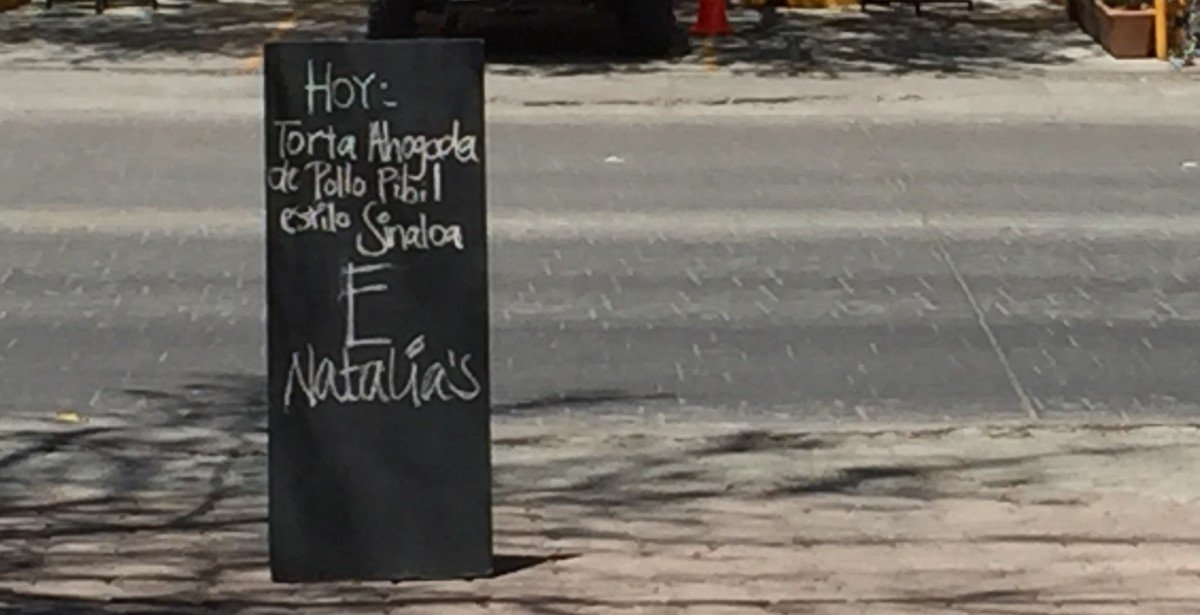 Hoy:
Torta Ahogada
de Pollo Pibil
estilo Sinaloa
E
Natalia's